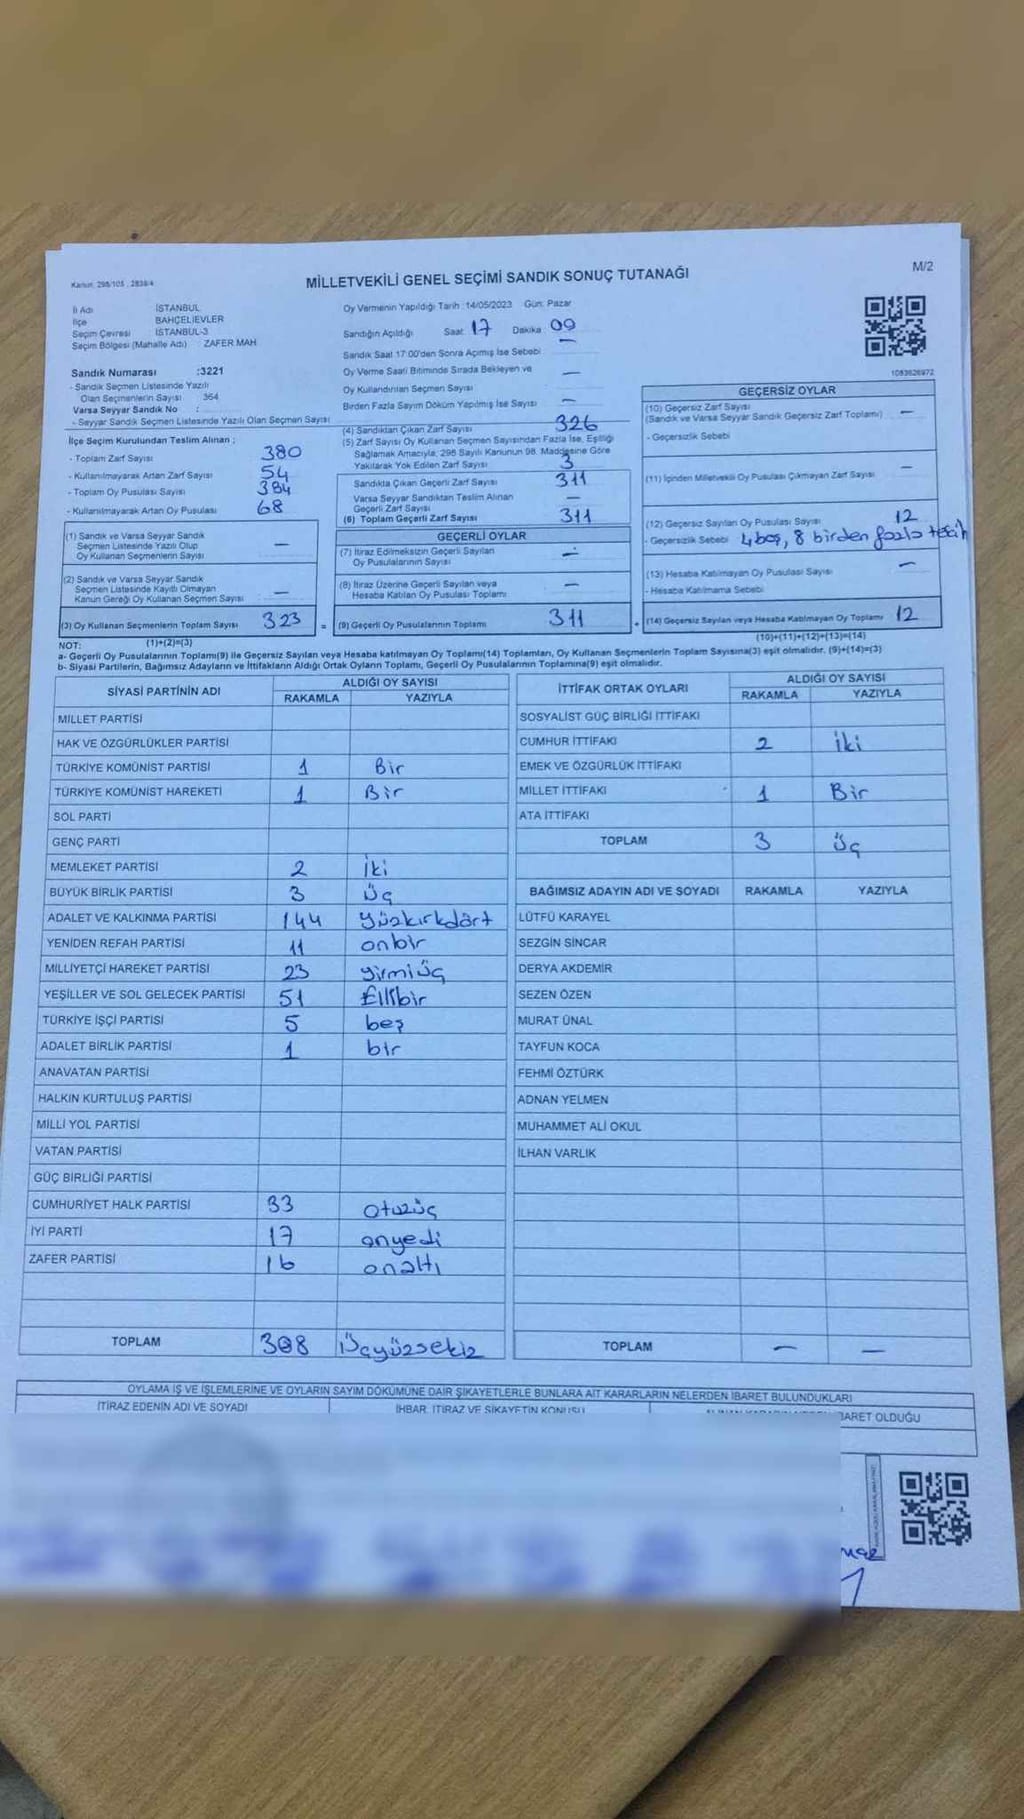 M/2
Kanun: 298/105 , 2839/4
MİLLETVEKİLİ GENEL SEÇİMİ SANDIK SONUÇ TUTANAĞI
İl Adı İSTANBUL
İlçe BAHÇELİEVLER
Seçim Çevresi İSTANBUL-3
Seçim Bölgesi (Mahalle Adı) ZAFER MAH
Sandık Numarası :3221
- Sandık Seçmen Listesinde Yazılı
Olan Seçmenlerin Sayısı 364
Varsa Seyyar Sandık No :
- Seyyar Sandık Seçmen Listesinde Yazılı Olan Seçmen Sayısı
Oy Vermenin Yapıldığı Tarih :14/05/2023 Gün: Pazar
Sandığın Açıldığı Saat 17 Dakika 09
Sandık Saat 17:00'den Sonra Açımış İse Sebebi —
Oy Verme Saati Bitiminde Sırada Bekleyen ve
Oy Kullandırılan Seçmen Sayısı —
Birden Fazla Sayım Döküm Yapılmış İse Sayısı —
1083626972
İlçe Seçim Kurulundan Teslim Alınan ;
- Toplam Zarf Sayısı 380
- Kullanılmayarak Artan Zarf Sayısı 54
- Toplam Oy Pusulası Sayısı 384
- Kullanılmayarak Artan Oy Pusulası 68
(1) Sandık ve Varsa Seyyar Sandık
Seçmen Listesinde Yazılı Olup
Oy Kullanan Seçmenlerin Sayısı —
(2) Sandık ve Varsa Seyyar Sandık
Seçmen Listesinde Kayıtlı Olmayan
Kanun Gereği Oy Kullanan Seçmen Sayısı —
(3) Oy Kullanan Seçmenlerin Toplam Sayısı 323 =
(1)+(2)=(3)
(4) Sandıktan Çıkan Zarf Sayısı 326
(5) Zarf Sayısı Oy Kullanan Seçmen Sayısından Fazla İse, Eşitliği
Sağlamak Amacıyla, 298 Sayılı Kanunun 98. Maddesine Göre
Yakılarak Yok Edilen Zarf Sayısı 3
Sandıkta Çıkan Geçerli Zarf Sayısı 311
Varsa Seyyar Sandıktan Teslim Alınan
Geçerli Zarf Sayısı —
(6) Toplam Geçerli Zarf Sayısı 311
GEÇERLİ OYLAR
(7) İtiraz Edilmeksizin Geçerli Sayılan
Oy Pusulalarının Toplamı —
(8) İtiraz Üzerine Geçerli Sayılan veya
Hesaba Katılan Oy Pusulası Toplamı —
(9) Geçerli Oy Pusulalarının Toplamı 311
GEÇERSİZ OYLAR
(10) Geçersiz Zarf Sayısı
(Sandık ve Varsa Seyyar Sandık Geçersiz Zarf Toplamı) —
- Geçersizlik Sebebi
(11) İçinden Milletvekili Oy Pusulası Çıkmayan Zarf Sayısı —
(12) Geçersiz Sayılan Oy Pusulası Sayısı 12
- Geçersizlik Sebebi 4 boş, 8 birden fazla tercih
(13) Hesaba Katılmayan Oy Pusulası Sayısı —
- Hesaba Katılmama Sebebi
(14) Geçersiz Sayılan veya Hesaba Katılmayan Oy Toplamı 12
(10)+(11)+(12)+(13)=(14)
NOT:
a- Geçerli Oy Pusulalarının Toplamı(9) ile Geçersiz Sayılan veya Hesaba katılmayan Oy Toplamı(14) Toplamları, Oy Kullanan Seçmenlerin Toplam Sayısına(3) eşit olmalıdır. (9)+(14)=(3)
b- Siyasi Partilerin, Bağımsız Adayların ve İttifakların Aldığı Ortak Oyların Toplamı, Geçerli Oy Pusulalarının Toplamına(9) eşit olmalıdır.
SİYASİ PARTİNİN ADI ALDIĞI OY SAYISI
RAKAMLA YAZIYLA
MİLLET PARTİSİ
HAK VE ÖZGÜRLÜKLER PARTİSİ
TÜRKİYE KOMÜNİST PARTİSİ 1 Bir
TÜRKİYE KOMÜNİST HAREKETİ 1 Bir
SOL PARTİ
GENÇ PARTİ
MEMLEKET PARTİSİ 2 iki
BÜYÜK BİRLİK PARTİSİ 3 üç
ADALET VE KALKINMA PARTİSİ 144 yüzkırkdört
YENİDEN REFAH PARTİSİ 11 onbir
MİLLİYETÇİ HAREKET PARTİSİ 23 yirmiüç
YEŞİLLER VE SOL GELECEK PARTİSİ 51 Ellibir
TÜRKİYE İŞÇİ PARTİSİ 5 beş
ADALET BİRLİK PARTİSİ 1 bir
ANAVATAN PARTİSİ
HALKIN KURTULUŞ PARTİSİ
MİLLİ YOL PARTİSİ
VATAN PARTİSİ
GÜÇ BİRLİĞİ PARTİSİ
CUMHURİYET HALK PARTİSİ 33 otuzüç
İYİ PARTİ 17 onyedi
ZAFER PARTİSİ 16 onaltı
TOPLAM 308 Üçyüzsekiz
İTTİFAK ORTAK OYLARI ALDIĞI OY SAYISI
RAKAMLA YAZIYLA
SOSYALİST GÜÇ BİRLİĞİ İTTİFAKI
CUMHUR İTTİFAKI 2 iki
EMEK VE ÖZGÜRLÜK İTTİFAKI
MİLLET İTTİFAKI 1 Bir
ATA İTTİFAKI
TOPLAM 3 üç
BAĞIMSIZ ADAYIN ADI VE SOYADI RAKAMLA YAZIYLA
LÜTFÜ KARAYEL
SEZGİN SİNCAR
DERYA AKDEMİR
SEZEN ÖZEN
MURAT ÜNAL
TAYFUN KOCA
FEHMİ ÖZTÜRK
ADNAN YELMEN
MUHAMMET ALİ OKUL
İLHAN VARLIK
TOPLAM — —
OYLAMA İŞ VE İŞLEMLERİNE VE OYLARIN SAYIM DÖKÜMÜNE DAİR ŞİKAYETLERLE BUNLARA AİT KARARLARIN NELERDEN İBARET BULUNDUKLARI
İTİRAZ EDENİN ADI VE SOYADI İHBAR, İTİRAZ VE ŞİKAYETİN KONUSU